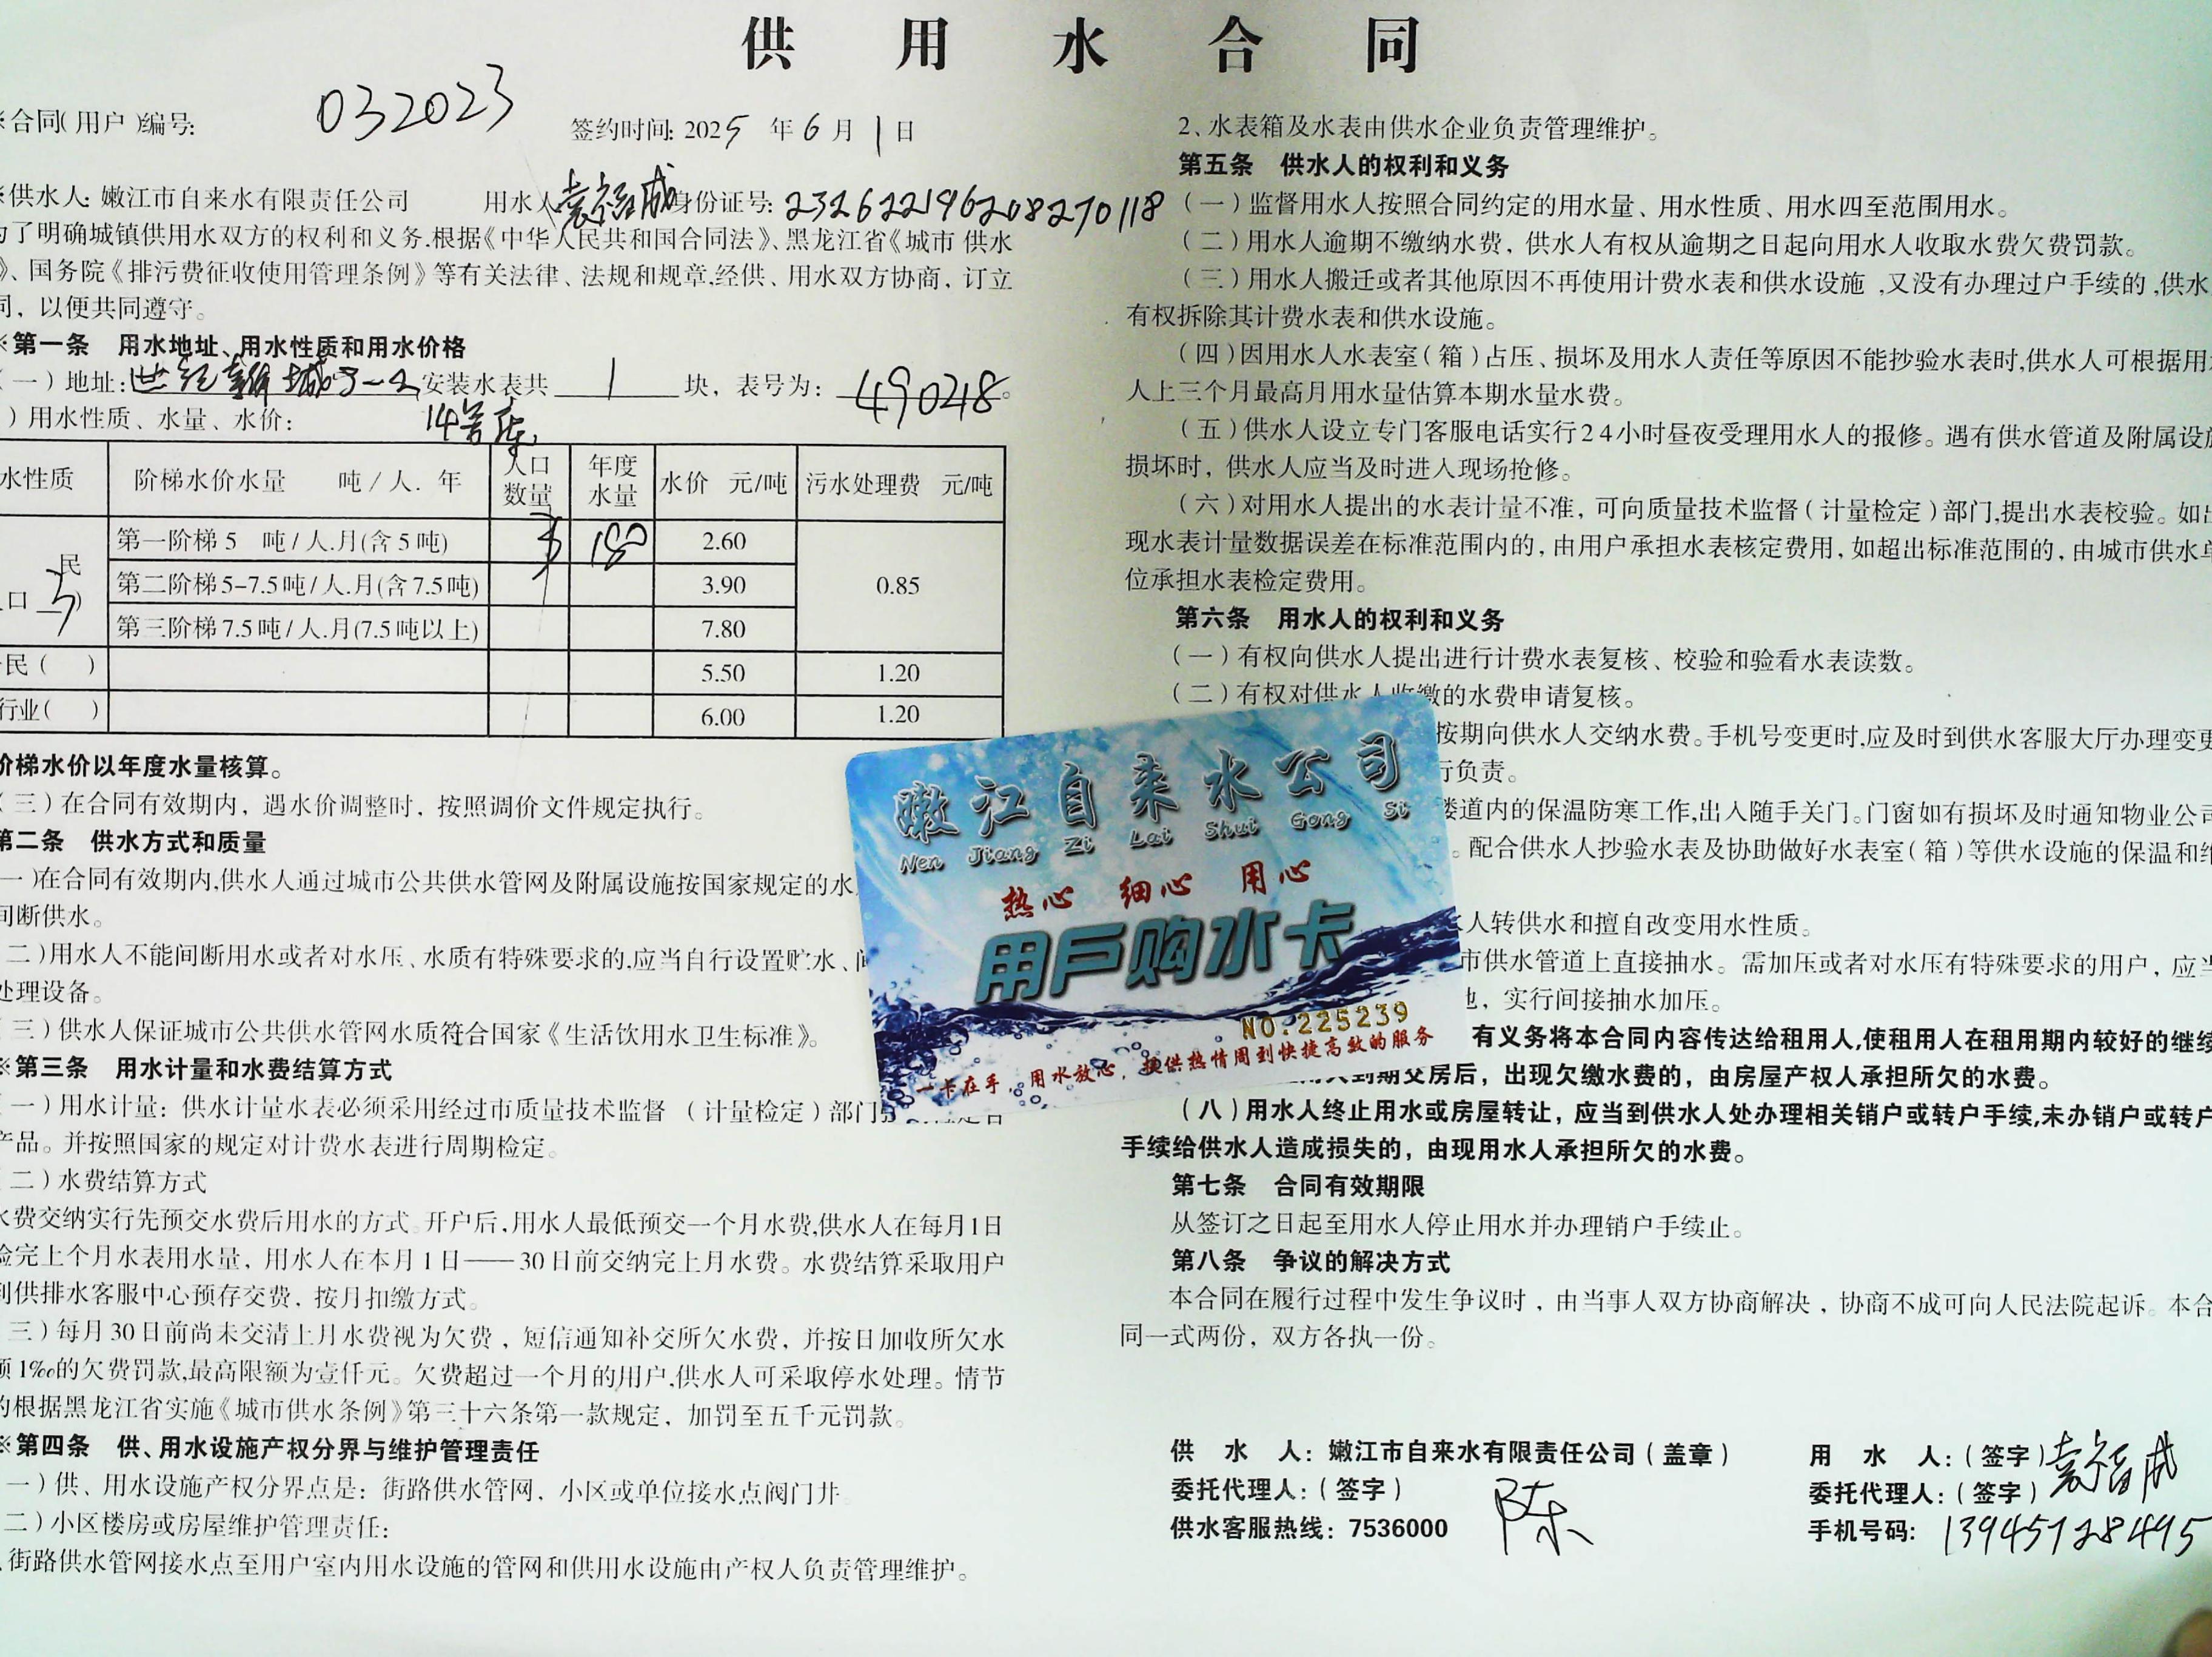 供用水合同
※合同(用户)编号: 032023 签约时间: 2025年6月1日
※供水人: 嫩江市自来水有限责任公司 用水人 袁福成 身份证号: 232622196208270118
为了明确城镇供用水双方的权利和义务.根据《中华人民共和国合同法》、黑龙江省《城市 供水
》、国务院《排污费征收使用管理条例》等有关法律、法规和规章,经供、用水双方协商，订立
同，以便共同遵守。
※第一条 用水地址、用水性质和用水价格
(一)地址: 世纪新城 安装水表共 1 块，表号为: 490248。
14号库
)用水性质、水量、水价:
水性质 阶梯水价水量 吨/人.年 人口数量 年度水量 水价 元/吨 污水处理费 元/吨
民 第一阶梯5 吨/人.月(含5吨) 3 180 2.60 0.85
口 3 ) 第二阶梯5-7.5吨/人.月(含7.5吨) 3.90
第三阶梯7.5吨/人.月(7.5吨以上) 7.80
民( ) 5.50 1.20
行业( ) 6.00 1.20
阶梯水价以年度水量核算。
(三)在合同有效期内，遇水价调整时，按照调价文件规定执行。
第二条 供水方式和质量
一)在合同有效期内,供水人通过城市公共供水管网及附属设施按国家规定的水
间断供水。
二)用水人不能间断用水或者对水压、水质有特殊要求的,应当自行设置贮水、间
处理设备。
三)供水人保证城市公共供水管网水质符合国家《生活饮用水卫生标准》。
※第三条 用水计量和水费结算方式
一)用水计量：供水计量水表必须采用经过市质量技术监督 (计量检定)部门
产品。并按照国家的规定对计费水表进行周期检定。
二)水费结算方式
水费交纳实行先预交水费后用水的方式。开户后,用水人最低预交一个月水费,供水人在每月1日
验完上个月水表用水量，用水人在本月1日——30日前交纳完上月水费。水费结算采取用户
到供排水客服中心预存交费，按月扣缴方式。
三)每月30日前尚未交清上月水费视为欠费，短信通知补交所欠水费，并按日加收所欠水
额1‰的欠费罚款,最高限额为壹仟元。欠费超过一个月的用户,供水人可采取停水处理。情节
的根据黑龙江省实施《城市供水条例》第三十六条第一款规定，加罚至五千元罚款。
※第四条 供、用水设施产权分界与维护管理责任
一)供、用水设施产权分界点是：街路供水管网，小区或单位接水点阀门井
二)小区楼房或房屋维护管理责任:
街路供水管网接水点至用户室内用水设施的管网和供用水设施由产权人负责管理维护。
2、水表箱及水表由供水企业负责管理维护。
第五条 供水人的权利和义务
(一)监督用水人按照合同约定的用水量、用水性质、用水四至范围用水。
(二)用水人逾期不缴纳水费，供水人有权从逾期之日起向用水人收取水费欠费罚款。
(三)用水人搬迁或者其他原因不再使用计费水表和供水设施,又没有办理过户手续的,供水
有权拆除其计费水表和供水设施。
(四)因用水人水表室(箱)占压、损坏及用水人责任等原因不能抄验水表时,供水人可根据用
人上三个月最高月用水量估算本期水量水费。
(五)供水人设立专门客服电话实行24小时昼夜受理用水人的报修。遇有供水管道及附属设施
损坏时，供水人应当及时进入现场抢修。
(六)对用水人提出的水表计量不准，可向质量技术监督(计量检定)部门,提出水表校验。如出
现水表计量数据误差在标准范围内的，由用户承担水表核定费用，如超出标准范围的，由城市供水单
位承担水表检定费用。
第六条 用水人的权利和义务
(一)有权向供水人提出进行计费水表复核、校验和验看水表读数。
(二)有权对供水人收缴的水费申请复核。
按期向供水人交纳水费。手机号变更时,应及时到供水客服大厅办理变更
行负责。
楼道内的保温防寒工作,出入随手关门。门窗如有损坏及时通知物业公司
。配合供水人抄验水表及协助做好水表室(箱)等供水设施的保温和维
人转供水和擅自改变用水性质。
市供水管道上直接抽水。需加压或者对水压有特殊要求的用户，应当
池，实行间接抽水加压。
有义务将本合同内容传达给租用人,使租用人在租用期内较好的继续
到期交房后，出现欠缴水费的，由房屋产权人承担所欠的水费。
(八)用水人终止用水或房屋转让，应当到供水人处办理相关销户或转户手续,未办销户或转户
手续给供水人造成损失的，由现用水人承担所欠的水费。
第七条 合同有效期限
从签订之日起至用水人停止用水并办理销户手续止。
第八条 争议的解决方式
本合同在履行过程中发生争议时，由当事人双方协商解决，协商不成可向人民法院起诉。本合
同一式两份，双方各执一份。
供水人：嫩江市自来水有限责任公司(盖章) 用水人:(签字) 袁福成
委托代理人:(签字) 陈 委托代理人:(签字)
供水客服热线：7536000 手机号码: 13945728495
嫩江自来水公司
Nen Jiang Zi Lai Shui Gong Si
热心 细心 用心
用户购水卡
NO.225239
一卡在手，用水放心，提供热情周到快捷高效的服务